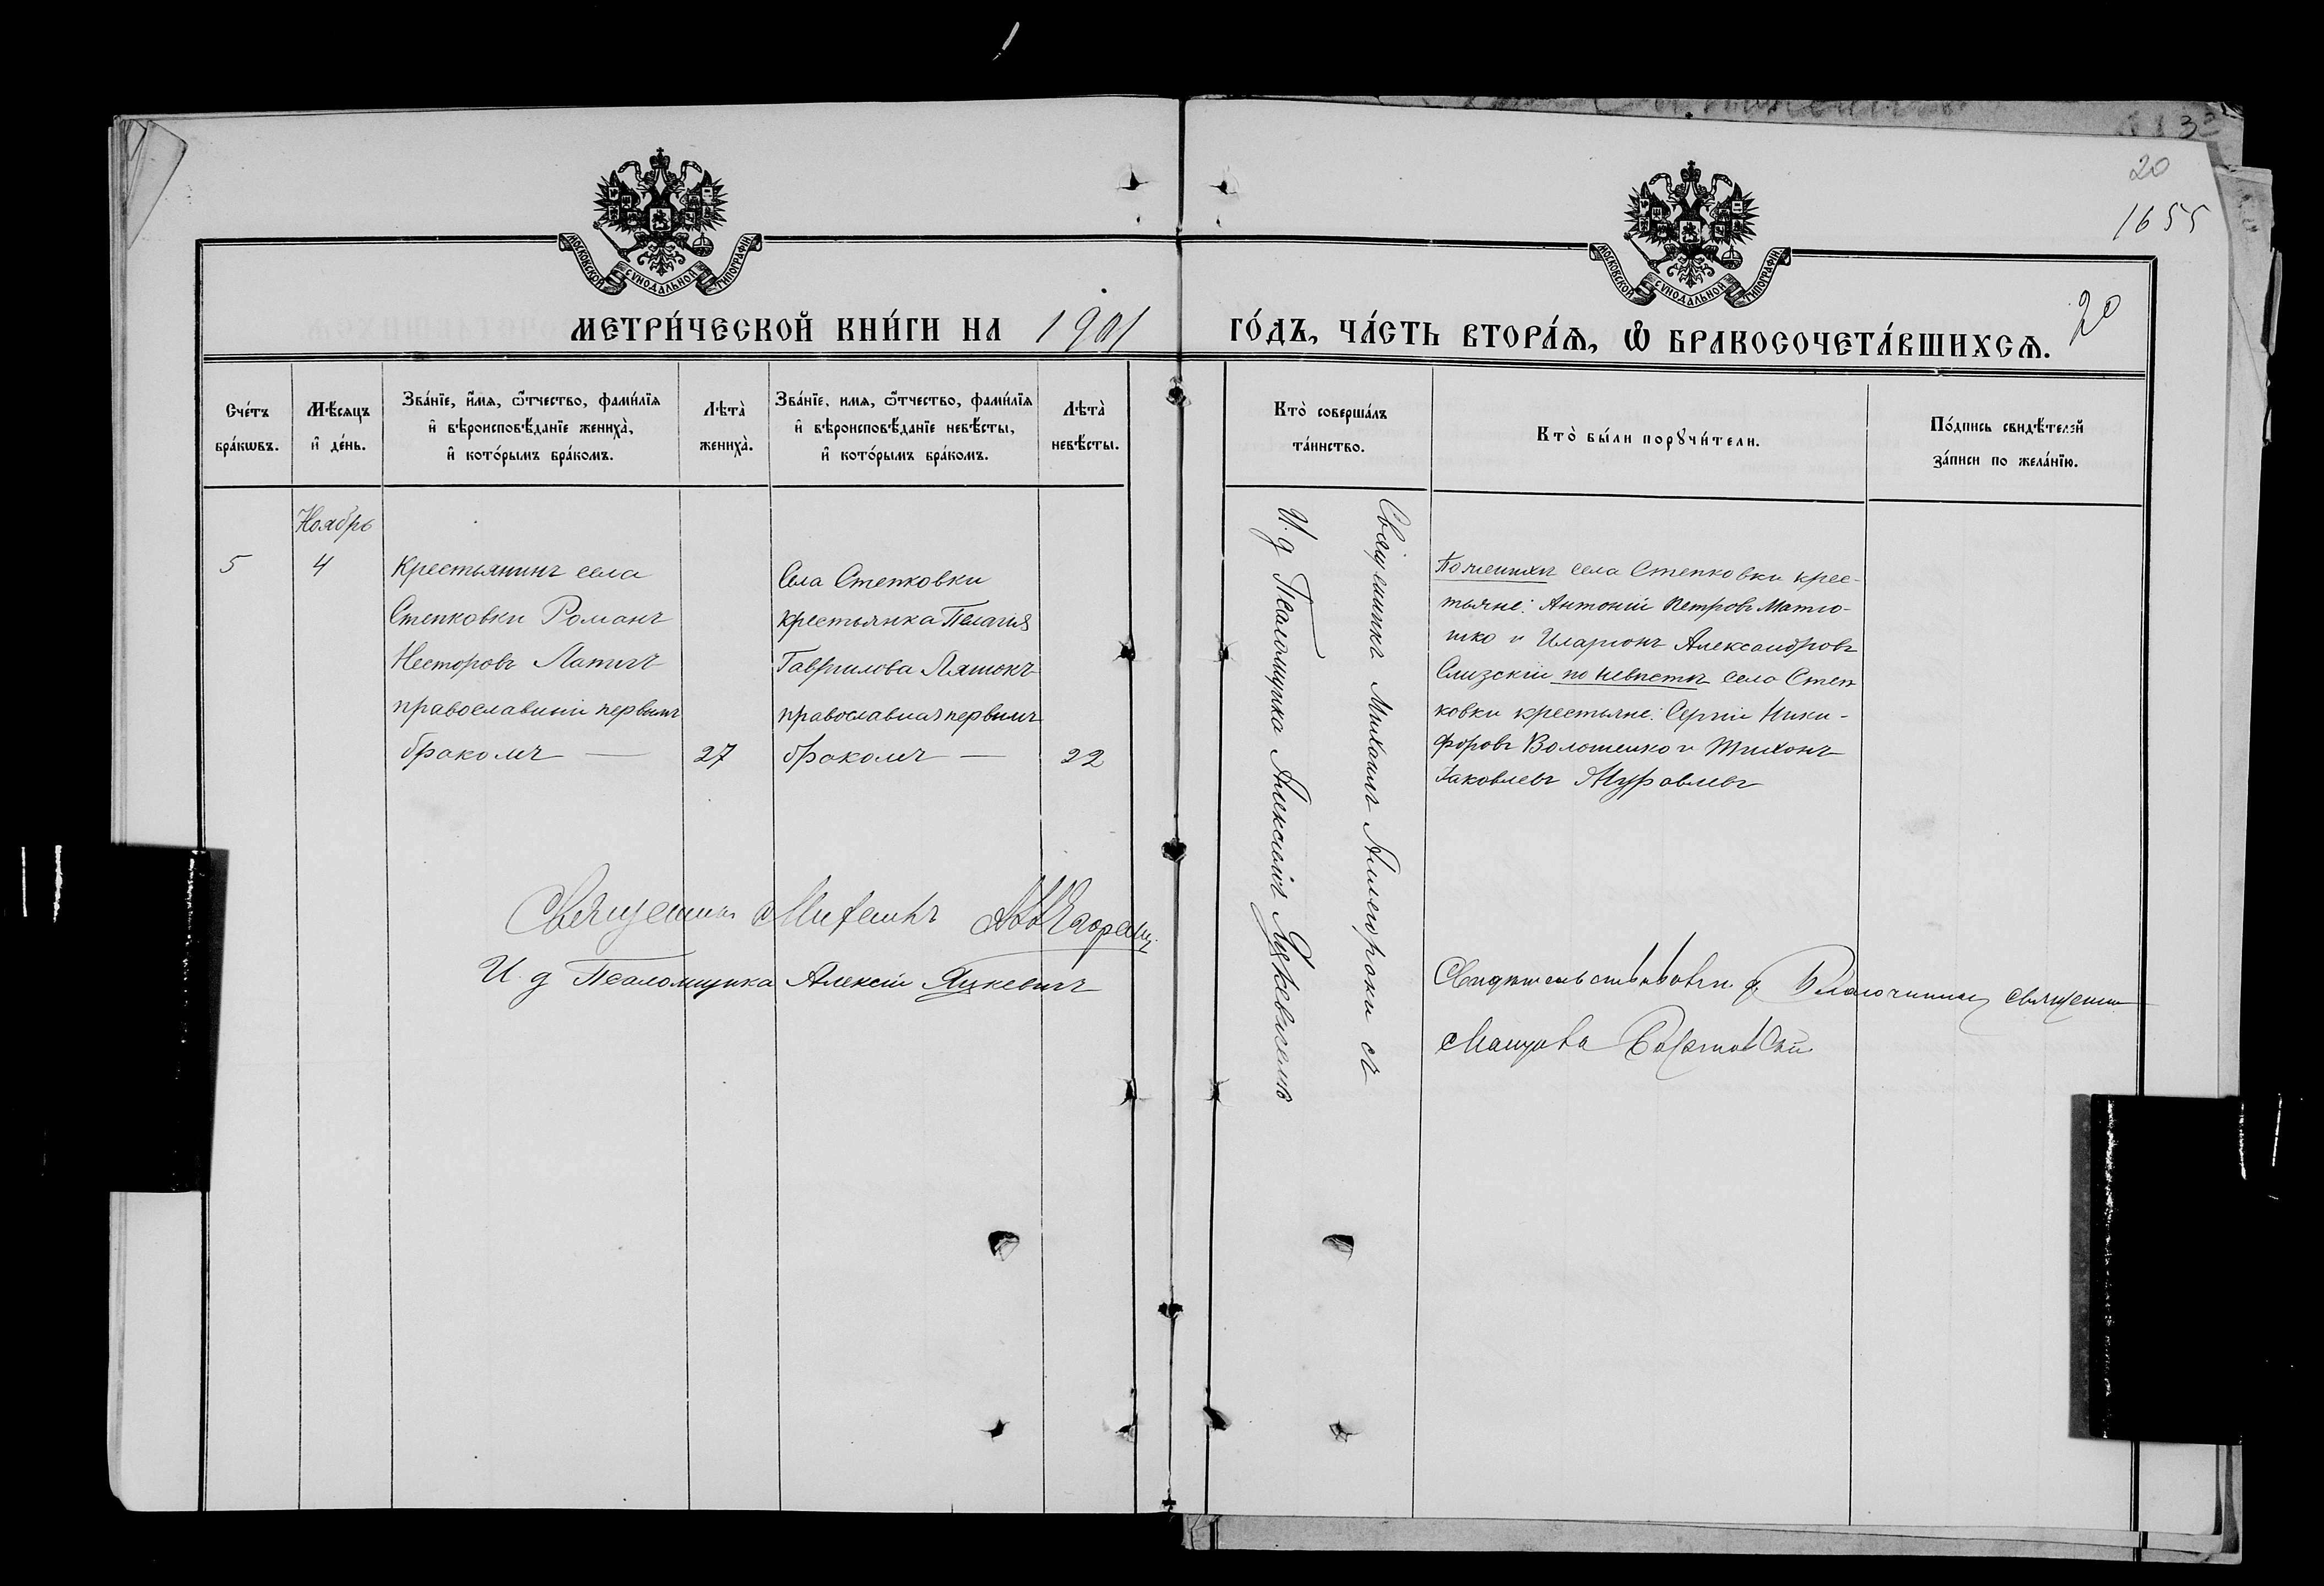 20
1655
МОСКОВСКОЙ СУНОДАЛЬНОЙ ТИПОГРАФІИ.
МОСКОВСКОЙ СУНОДАЛЬНОЙ ТИПОГРАФІИ.
МЕТРИ́ЧЕСКОЙ КНИ́ГИ НА 1901 ГО́ДЪ, ЧА́СТЬ ВТОРА́Ѧ, Ѡ БРАКОСОЧЕТА́ВШИХСѦ.
20
Сче́тъ бра́кѡвъ.
Мѣ́сяцъ и де́нь.
Зва́нїе, и́мѧ, ѻ́тчество, фами́лїѧ и вѣроисповѣ́данїе жениха̀, и кото́рымъ бра́комъ.
Лѣта̀ жениха̀.
Зва́нїе, имѧ, ѻ́тчество, фами́лїѧ и вѣроисповѣ́данїе невѣ́сты, и кото́рымъ бра́комъ.
Лѣта̀ невѣ́сты.
Кто̀ соверша́лъ та́инство.
Кто̀ бы́ли порꙋчи́тели.
По́дпись свидѣ́телей за́писи по жела́нїю.
Ноябрь
5
4
Крестьянинъ села
Степковки Романъ
Несторовъ
православный первымъ
бракомъ —
27
Села Степковки
крестьянка Пелагія
Гаврилова Лятокъ
православная первымъ
бракомъ —
22
Священникъ Михаилъ
И. д. Псаломщика Алексій Яцкевичемъ
По женихѣ села Степковки крес-
тьяне: Антоній Петровъ Матю-
шко и Иларіонъ Александровъ
Слизскій по невѣстѣ села Степ
ковки крестьяне: Сергій Ники-
форовъ Волошенко и Тихонъ
Іаковлевъ Муравлевъ
Священникъ Михаилъ
И. д. Псаломщика Алексій Яцкевичъ
Благочинный священникъ